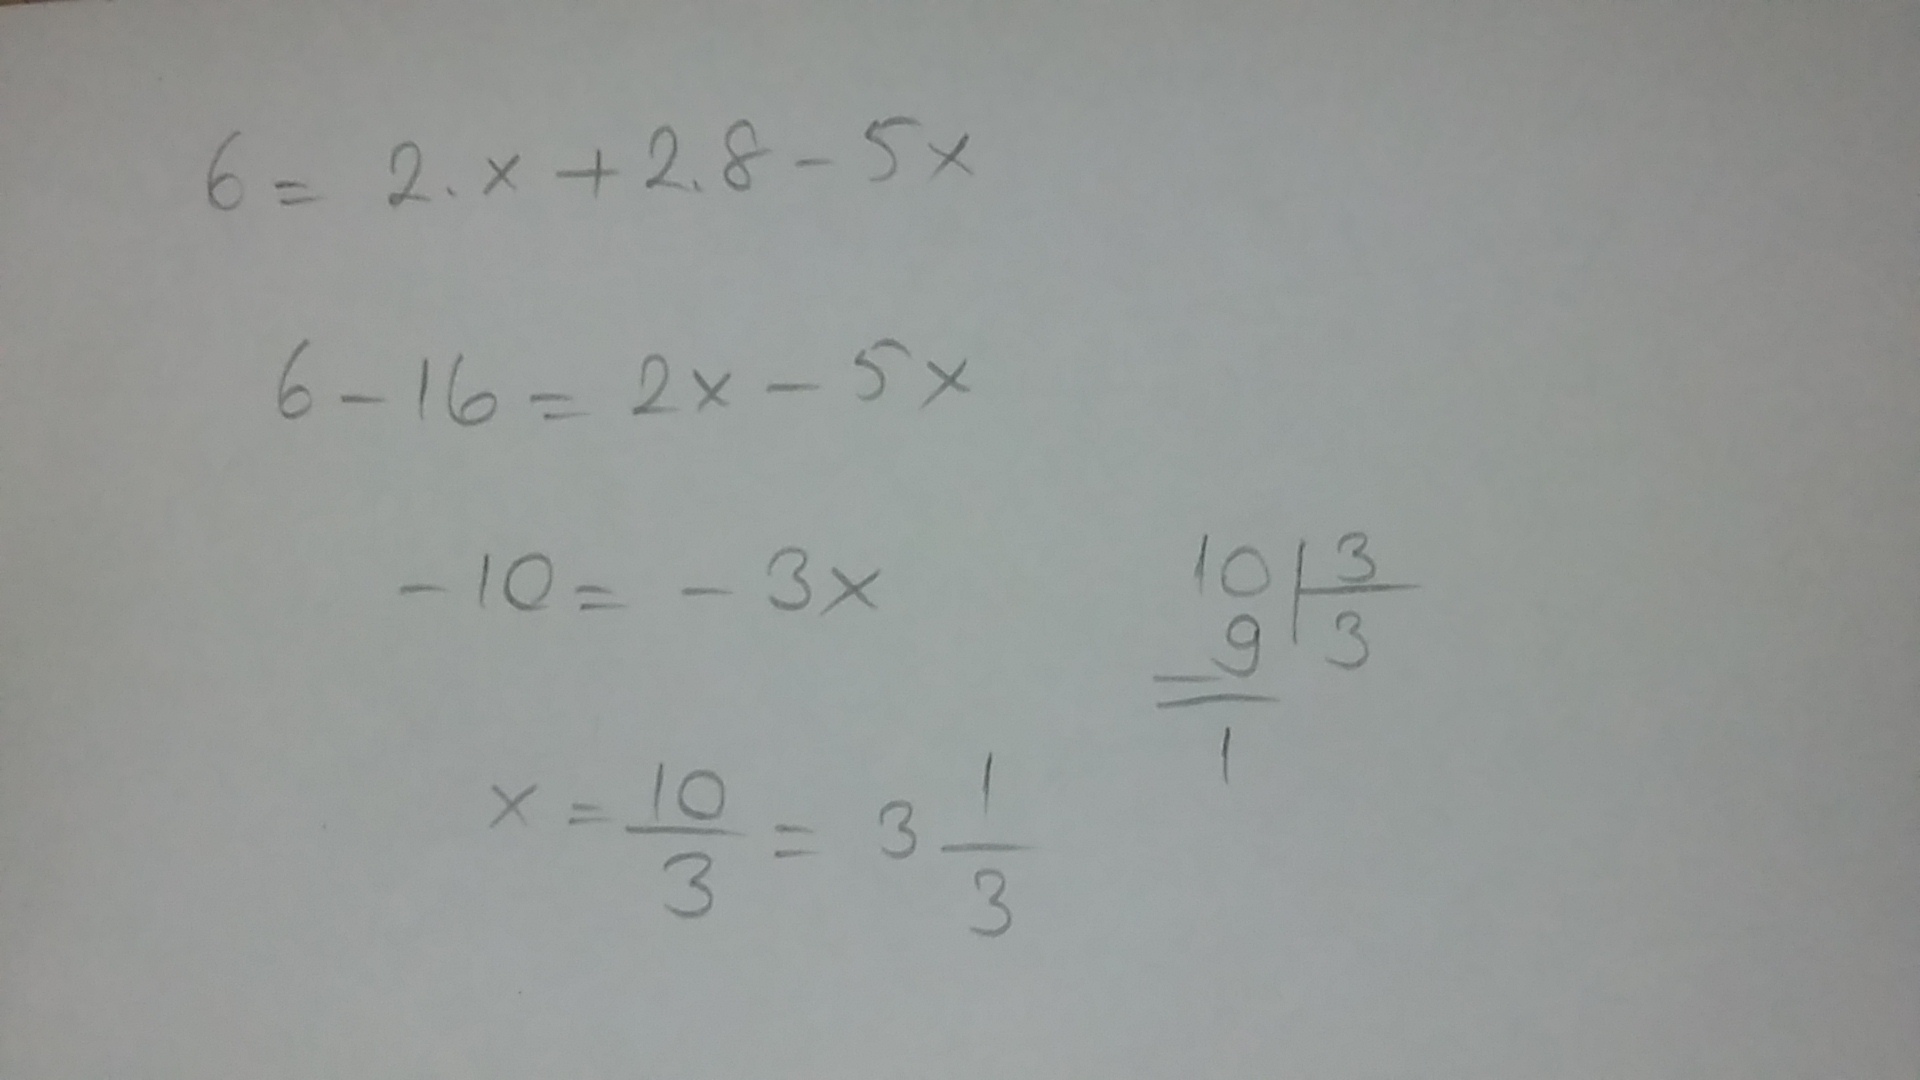 6 = 2.x + 2.8 - 5x
6 - 16 = 2x - 5x
-10 = - 3x
x = 10/3 = 3 1/3
10 | 3
9 | 3
1